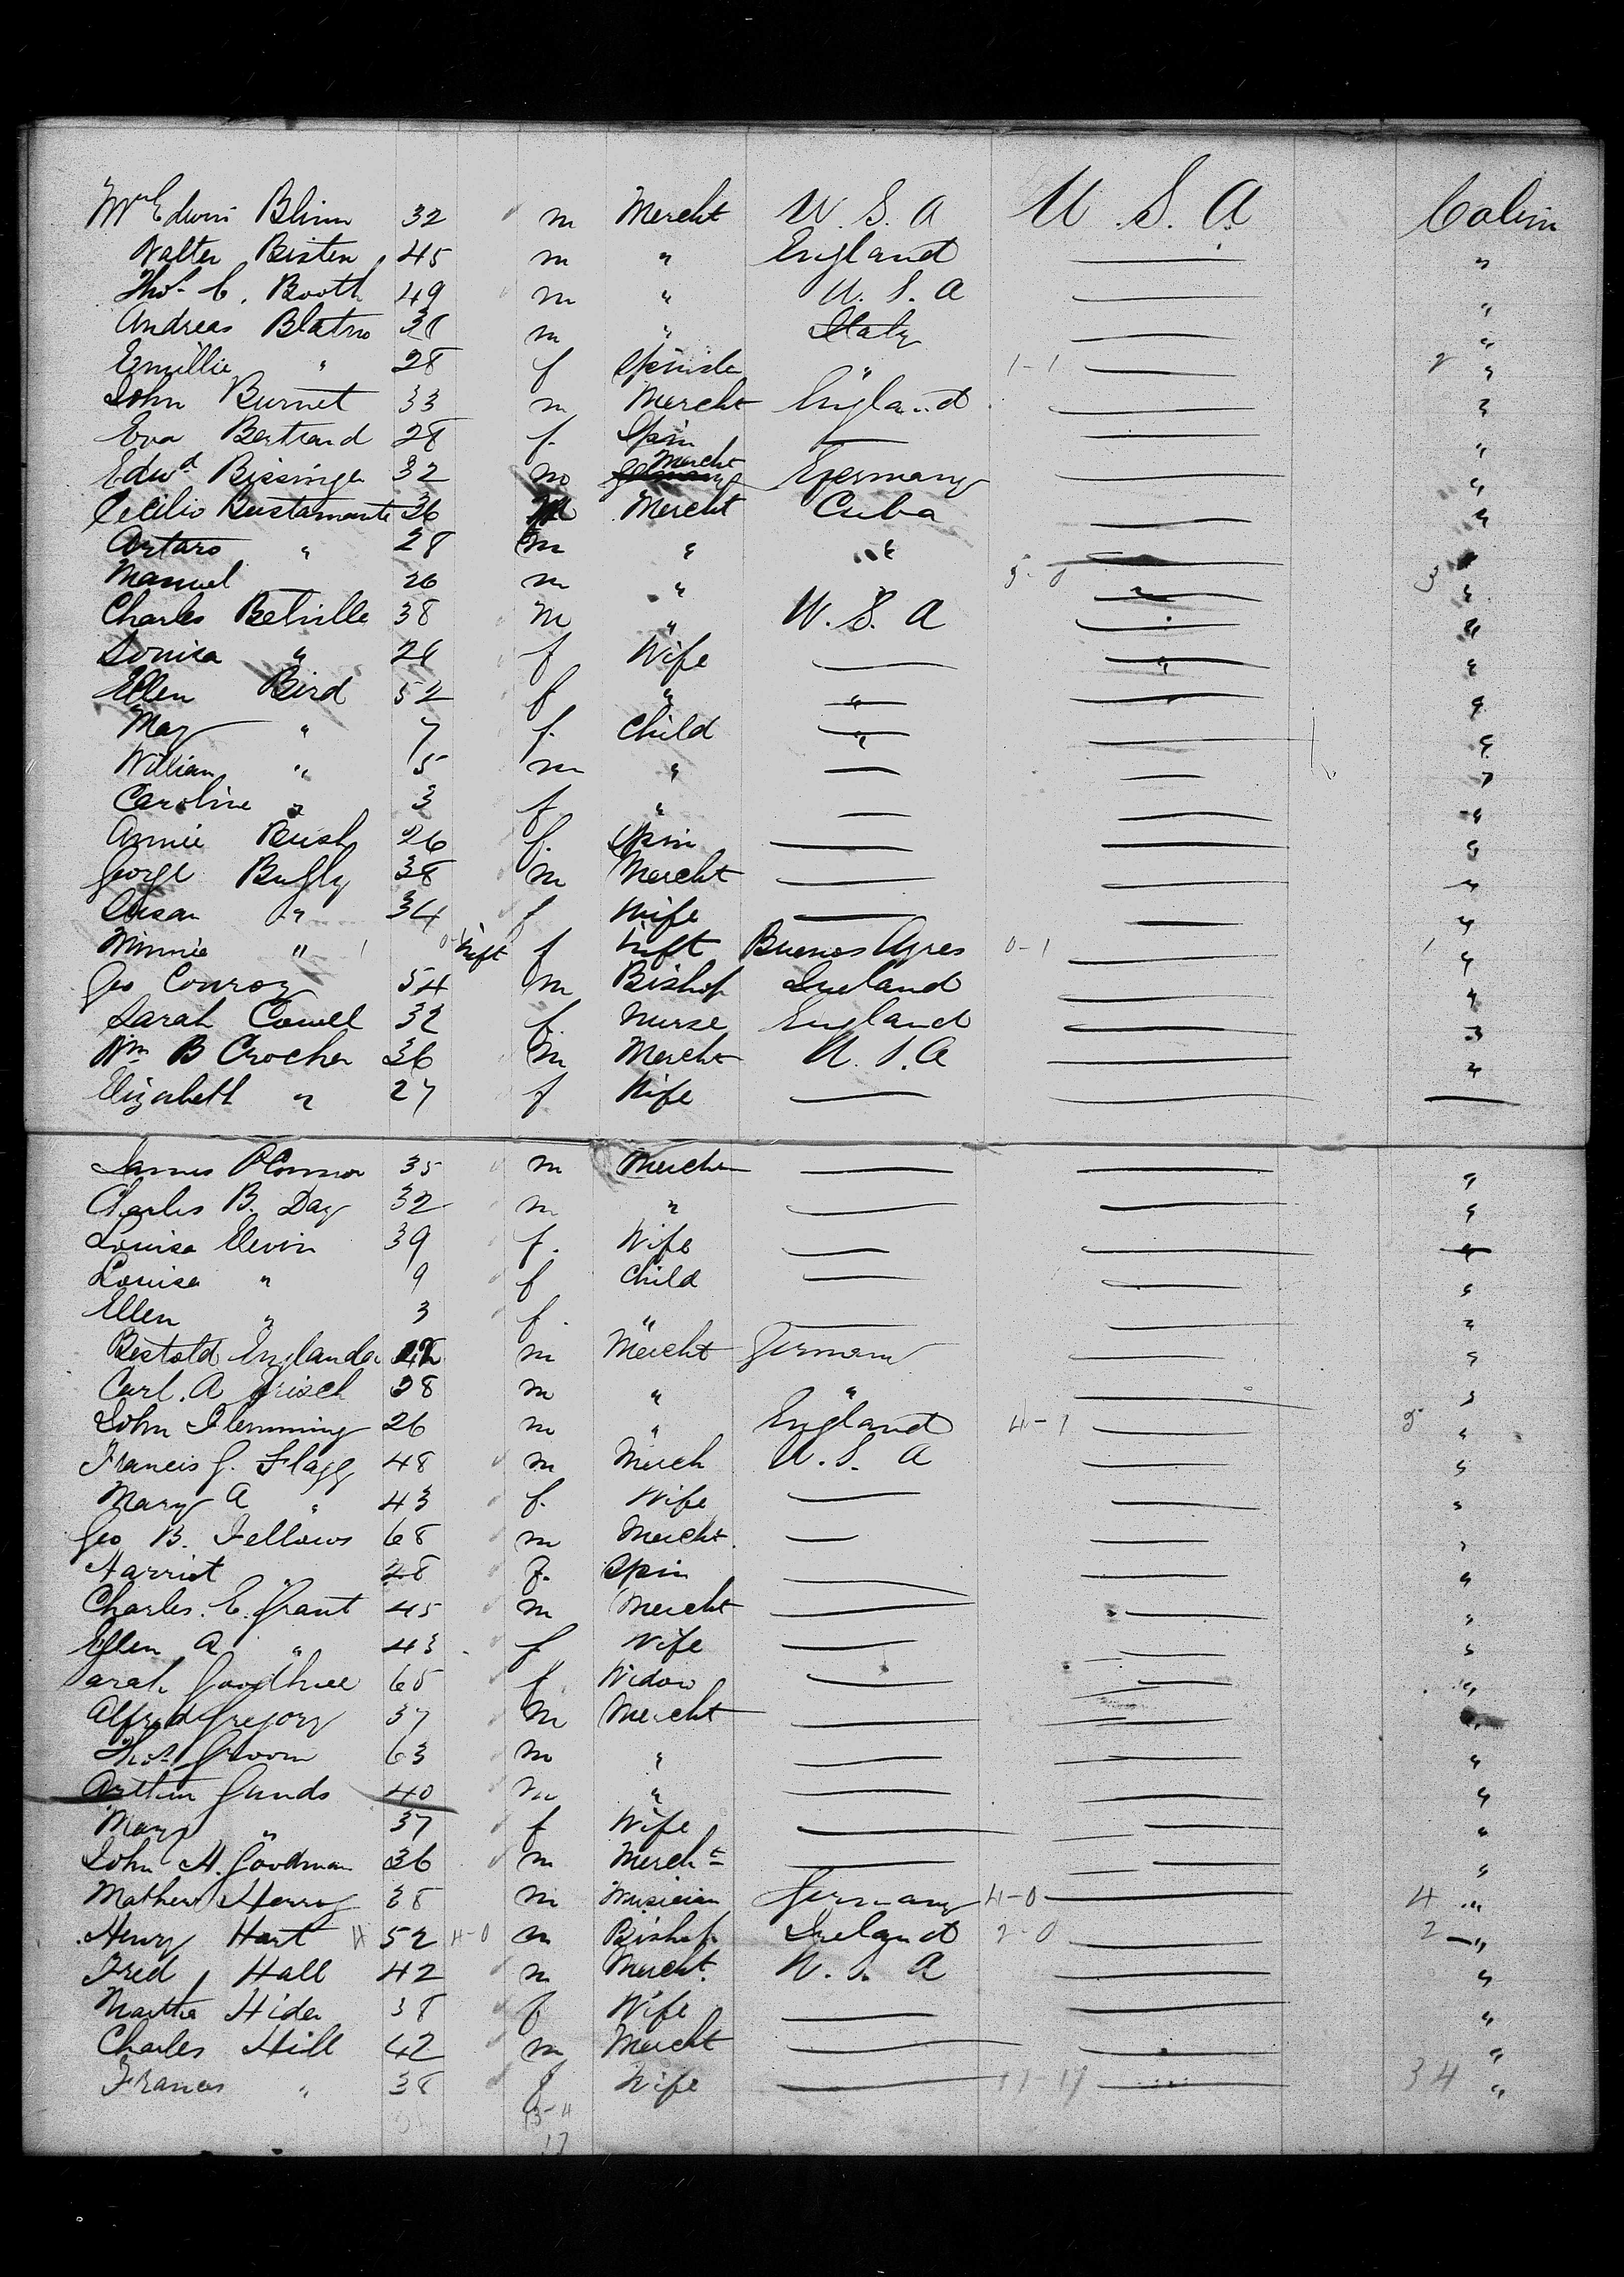 Mr Edwin Blinn 32 m Mercht U. S. A U. S. A Cabin
Walter Bisten 45 m " England "
Thos C. Booth 49 m " U. S. A "
Andreas 38 m " Italy "
Emillie " 28 f Spinster " 1-1 2 "
John Burnet 33 m Mercht England "
Eva Bertrand 28 f. Spin "
Edwd Bissinger 32 m Mercht Germany "
Cecilio Bustamante 36 m Mercht Cuba "
Arturo " 28 m " " "
Manuel 26 m " 3-0 3 "
Charles Belville 38 m " U. S. A "
Louisa " 26 f Wife "
Ellen Bird 52 f " " "
May " 7 f. Child " "
William " 5 m " "
Caroline " 3 f " "
Annie Bush 26 f. Spin "
George Bugly 38 m Mercht "
Susan " 34 f Wife "
Minnie " 1 inft f inft Buenos Ayres 0-1 1 "
Geo Conroy 54 m Bishop Ireland "
Sarah Cowell 32 f. Nurse England "
Wm B Crocker 36 m Mercht U. S. A "
Elizabeth " 27 f Wife
James O'Connor 35 m Mercht "
Charles B. Day 32 m " "
Louisa Elevin 39 f. Wife "
Louisa " 9 f Child "
Ellen " 3 f. " "
Bertold Englander m Mercht German "
Carl. A Frisch 38 m " " "
John Flemming 26 m " England 4-1 5 "
Francis G. Flagg 48 m Merch U. S. A "
Mary A " 43 f. Wife "
Geo B. Fellows 68 m Mercht. "
Harriet " 28 f. Spin "
Charles. E. Grant 45 m Mercht "
Ellen A " 43 f Wife "
Sarah 65 f. Widow "
Alfred Gregory 37 m Mercht "
Thos. Groom 63 m " "
Arthur Gunds 40 m " "
Mary " 37 f Wife "
John H. Goodman 36 m Mercht "
Mathew Herrog 38 m Musician Germany 4-0 4 "
Henry Hart 52 4-0 m Bishop Ireland 2-0 2 "
Fred Hall 42 m Mercht. U. S. A "
Martha Hider 38 f Wife "
Charles Hill 42 m Mercht "
Frances " 38 f Wife 17-17 34 "
13-4
17